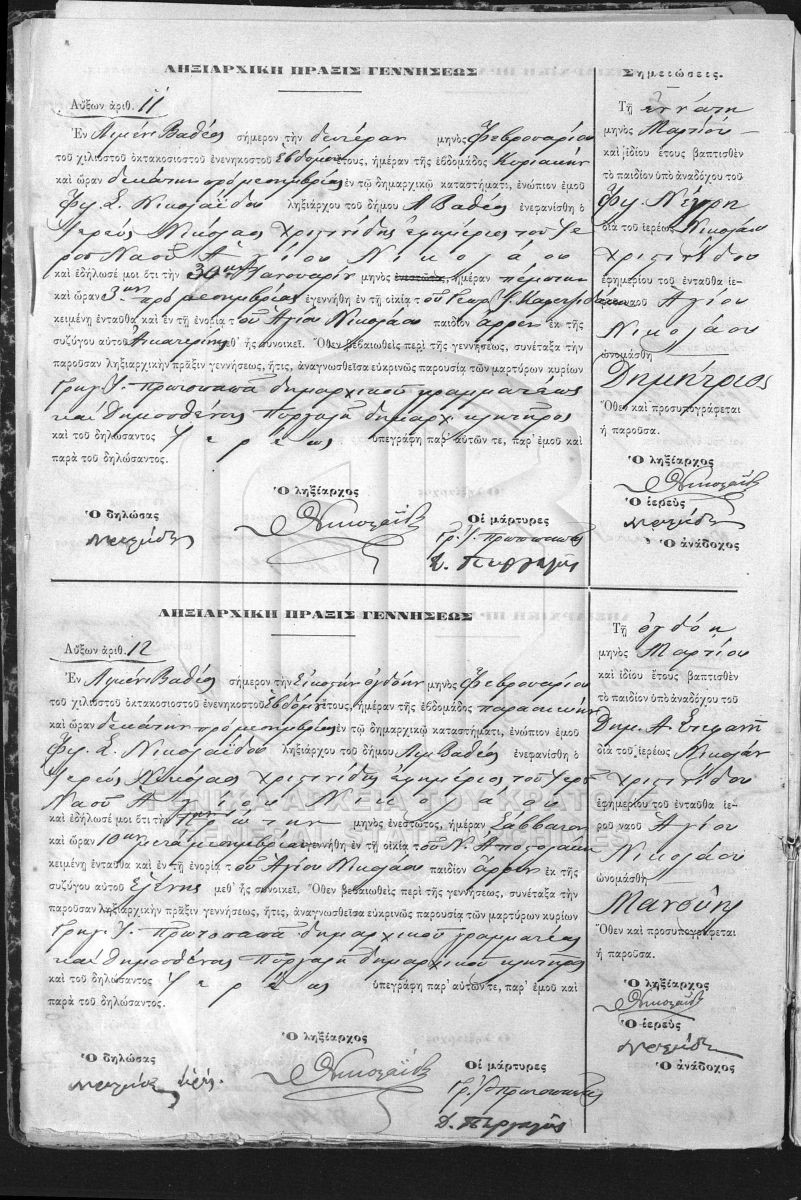 ΛΗΞΙΑΡΧΙΚΗ ΠΡΑΞΙΣ ΓΕΝΝΗΣΕΩΣ
Αὔξων ἀριθ. 11
Ἐν Λιμένι Βαθέος σήμερον τὴν δευτέραν μηνὸς Φεβρουαρίου
τοῦ χιλιοστοῦ ὀκτακοσιοστοῦ ἐνενηκοστοῦ ἑβδόμου ἔτους, ἡμέραν τῆς ἑβδομάδος Κυριακὴν
καὶ ὥραν δεκάτην πρὸ μεσημβρίας ἐν τῷ δημαρχικῷ καταστήματι, ἐνώπιον ἐμοῦ
Σ. Νικολαΐδου ληξιάρχου τοῦ δήμου Λ Βαθέος ἐνεφανίσθη ὁ
Ἱερεὺς Νικόλαος Χρηστινίδης ἐφημέριος τοῦ Ἱε
ροῦ Ναοῦ Ἁγίου Νικολάου
καὶ ἐδήλωσέ μοι ὅτι τὴν 30ην Ἰανουαρίου μηνὸς ἐνεστῶτος, ἡμέραν πέμπτην
καὶ ὥραν 3ην πρὸ μεσημβρίας ἐγεννήθη ἐν τῇ οἰκίᾳ τοῦ Γεωρ.
κειμένῃ ἐνταῦθα καὶ ἐν τῇ ἐνορίᾳ τοῦ Ἁγίου Νικολάου παιδίον ἄρρεν ἐκ τῆς
συζύγου αὐτοῦ Αἰκατερίνης μεθ' ἧς συνοικεῖ. Ὅθεν βεβαιωθεὶς περὶ τῆς γεννήσεως, συνέταξα τὴν
παροῦσαν ληξιαρχικὴν πρᾶξιν γεννήσεως, ἥτις, ἀναγνωσθεῖσα εὐκρινῶς παρουσίᾳ τῶν μαρτύρων κυρίων
Γρηγ. Ἰ. Πρωτοπαπᾶ δημαρχικοῦ γραμματέως
καὶ Δημοσθένους Πυργαλῆ δημαρχ. κλητῆρος
καὶ τοῦ δηλώσαντος Ἱερέως ὑπεγράφη παρ' αὐτῶν τε, παρ' ἐμοῦ καὶ
παρὰ τοῦ δηλώσαντος.
Ὁ ληξίαρχος
Ὁ δηλώσας
Οἱ μάρτυρες
Νικολαΐδης
Γρ. Ἰ. Πρωτοπαπᾶς
Δ. Πυργαλῆς
Σημειώσεις.
Τῇ ἐννάτῃ
μηνὸς Μαρτίου
καὶ ἰδίου ἔτους βαπτισθὲν
τὸ παιδίον ὑπὸ ἀναδόχου τοῦ
Νέγρη
διὰ τοῦ ἱερέως Νικολάου
Χρηστινίδου
ἐφημερίου τοῦ ἐνταῦθα ἱε-
ροῦ ναοῦ Ἁγίου
Νικολάου
ὠνομάσθη
Δημήτριος
Ὅθεν καὶ προσυπογράφεται
ἡ παροῦσα.
Ὁ ληξίαρχος
Νικολαΐδης
Ὁ ἱερεὺς
Ὁ ἀνάδοχος
ΛΗΞΙΑΡΧΙΚΗ ΠΡΑΞΙΣ ΓΕΝΝΗΣΕΩΣ
Αὔξων ἀριθ. 12
Ἐν Λιμένι Βαθέος σήμερον τὴν Εἰκοστὴν ὀγδόην μηνὸς Φεβρουαρίου
τοῦ χιλιοστοῦ ὀκτακοσιοστοῦ ἐνενηκοστοῦ Ἑβδόμου ἔτους, ἡμέραν τῆς ἑβδομάδος παρασκευὴν
καὶ ὥραν δεκάτην πρὸ μεσημβρίας ἐν τῷ δημαρχικῷ καταστήματι, ἐνώπιον ἐμοῦ
Σ. Νικολαΐδου ληξιάρχου τοῦ δήμου Λιμ Βαθέος ἐνεφανίσθη ὁ
Ἱερεὺς Νικόλαος Χρηστινίδης ἐφημέριος τοῦ Ἱεροῦ
Ναοῦ Ἁγίου Νικολάου
καὶ ἐδήλωσέ μοι ὅτι τὴν πρώτην μηνὸς ἐνεστῶτος, ἡμέραν Σάββατον
καὶ ὥραν 10ην μετὰ μεσημβρίαν ἐγεννήθη ἐν τῇ οἰκίᾳ τοῦ Ν. Ἀποστολάκη
κειμένῃ ἐνταῦθα καὶ ἐν τῇ ἐνορίᾳ τοῦ Ἁγίου Νικολάου παιδίον ἄρρεν ἐκ τῆς
συζύγου αὐτοῦ Ἑλένης μεθ' ἧς συνοικεῖ. Ὅθεν βεβαιωθεὶς περὶ τῆς γεννήσεως, συνέταξα τὴν
παροῦσαν ληξιαρχικὴν πρᾶξιν γεννήσεως, ἥτις, ἀναγνωσθεῖσα εὐκρινῶς παρουσίᾳ τῶν μαρτύρων κυρίων
Γρηγ. Ἰ. Πρωτοπαπᾶ δημαρχικοῦ γραμματέως
καὶ Δημοσθένους Πυργαλῆ δημαρχικοῦ κλητῆρος
καὶ τοῦ δηλώσαντος Ἱερέως ὑπεγράφη παρ' αὐτῶν τε, παρ' ἐμοῦ καὶ
παρὰ τοῦ δηλώσαντος.
Ὁ ληξίαρχος
Ὁ δηλώσας
Οἱ μάρτυρες
Νικολαΐδης
Γρ. Ἰ. Πρωτοπαπᾶς
Δ. Πυργαλῆς
Τῇ ὀγδόῃ
μηνὸς Μαρτίου
καὶ ἰδίου ἔτους βαπτισθὲν
τὸ παιδίον ὑπὸ ἀναδόχου τοῦ
Δημ. Α. Στεφανῆ
διὰ τοῦ ἱερέως Νικολάου
Χρηστινίδου
ἐφημερίου τοῦ ἐνταῦθα ἱε-
ροῦ ναοῦ Ἁγίου
Νικολάου
ὠνομάσθη
Μανουὴλ
Ὅθεν καὶ προσυπογράφεται
ἡ παροῦσα.
Ὁ ληξίαρχος
Νικολαΐδης
Ὁ ἱερεὺς
Ὁ ἀνάδοχος